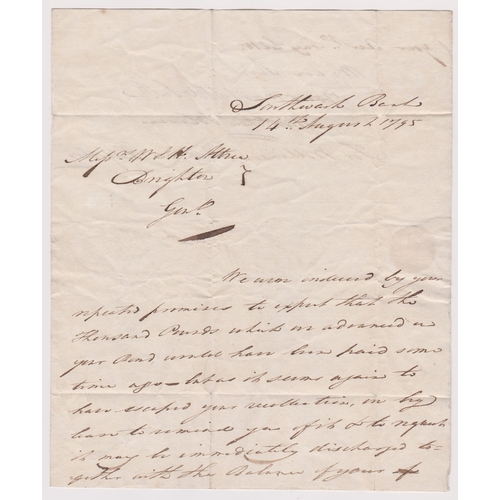 Southwark Bank
14th August 1795
Messrs W & H. Attree
Brighton
Gentn
We were induced by your
repeated promises to expect that the
Thousand Pounds which we advanced on
your Bond would have been paid some
time ago – but as it seems again to
have escaped your recollection, we beg
leave to remind you of it & to request
it may be immediately discharged to=
gether with the Balance of your